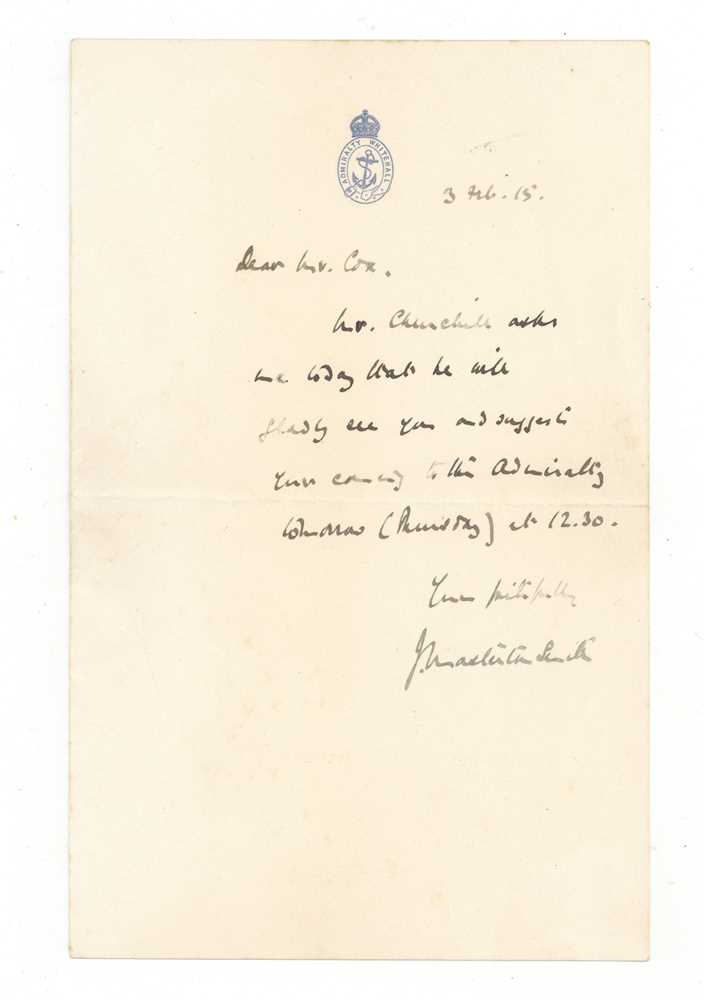 ADMIRALTY WHITEHALL
3 Feb. 15.
Dear Mr. Cox.
Mr. Churchill asks
me today that he will
gladly see you and suggests
your coming to the Admiralty
tomorrow (Thursday) at 12.30.
Yours faithfully
J Masterton Smith